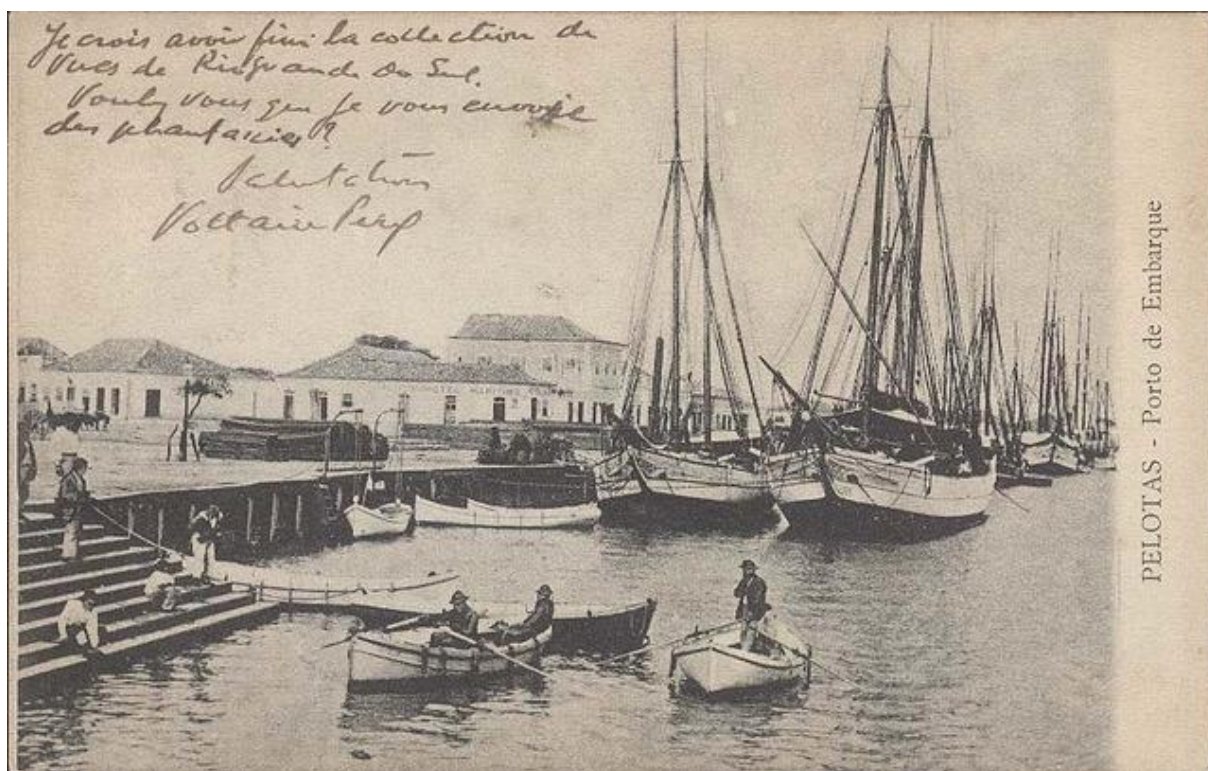 Je crois avoir fini la collection de
vues de Riogrande do Sul.
Voulez vous que je vous envoie
des phantaisies?
Salutations
Voltaire
PELOTAS - Porto de Embarque